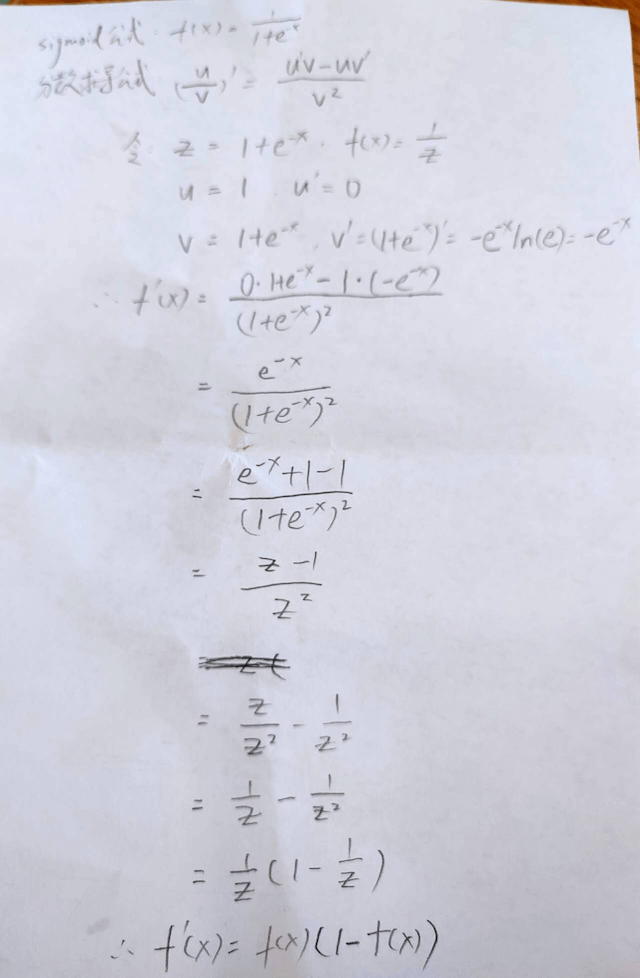 sigmoid公式: f(x) = 1/(1+e^-x)
分数求导公式 (u/v)' = (u'v-uv')/v²
令: z = 1+e^-x, f(x) = 1/z
u = 1, u' = 0
v = 1+e^-x, v' = (1+e^-x)' = -e^-x ln(e) = -e^-x
∴ f'(x) = (0·1+e^-x - 1·(-e^-x))/(1+e^-x)²
= e^-x/(1+e^-x)²
= (e^-x+1-1)/(1+e^-x)²
= (z-1)/z²
= z/z² - 1/z²
= 1/z - 1/z²
= 1/z (1 - 1/z)
∴ f'(x) = f(x)(1-f(x))